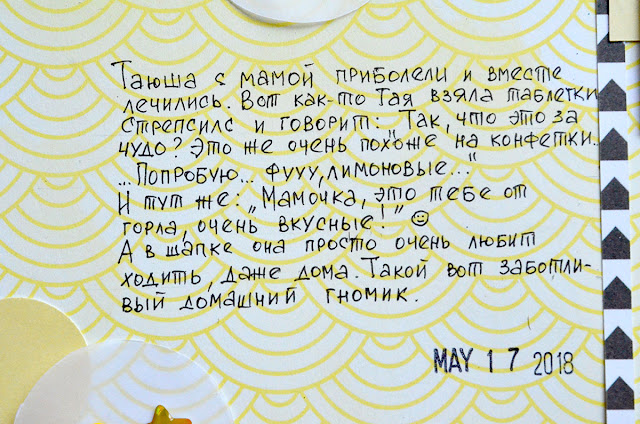 Таюша с мамой приболели и вместе
лечились. Вот как-то Тая взяла таблетки
Стрепсилс и говорит: „Так, что это за
чудо? Это же очень похоже на конфетки...
...Попробую... фууу, лимоновые..."
И тут же: „Мамочка, это тебе от
горла, очень вкусные!" ☺
А в шапке она просто очень любит
ходить, даже дома. Такой вот заботли-
вый домашний гномик.
MAY 17 2018